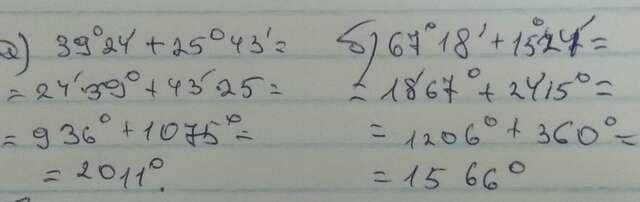 а) 39°24' + 25°43' =
= 24'·39° + 43'·25 =
= 936° + 1075° =
= 2011°.
б) 67°18' + 15°24' =
= 18·67° + 24·15° =
= 1206° + 360° =
= 1566°